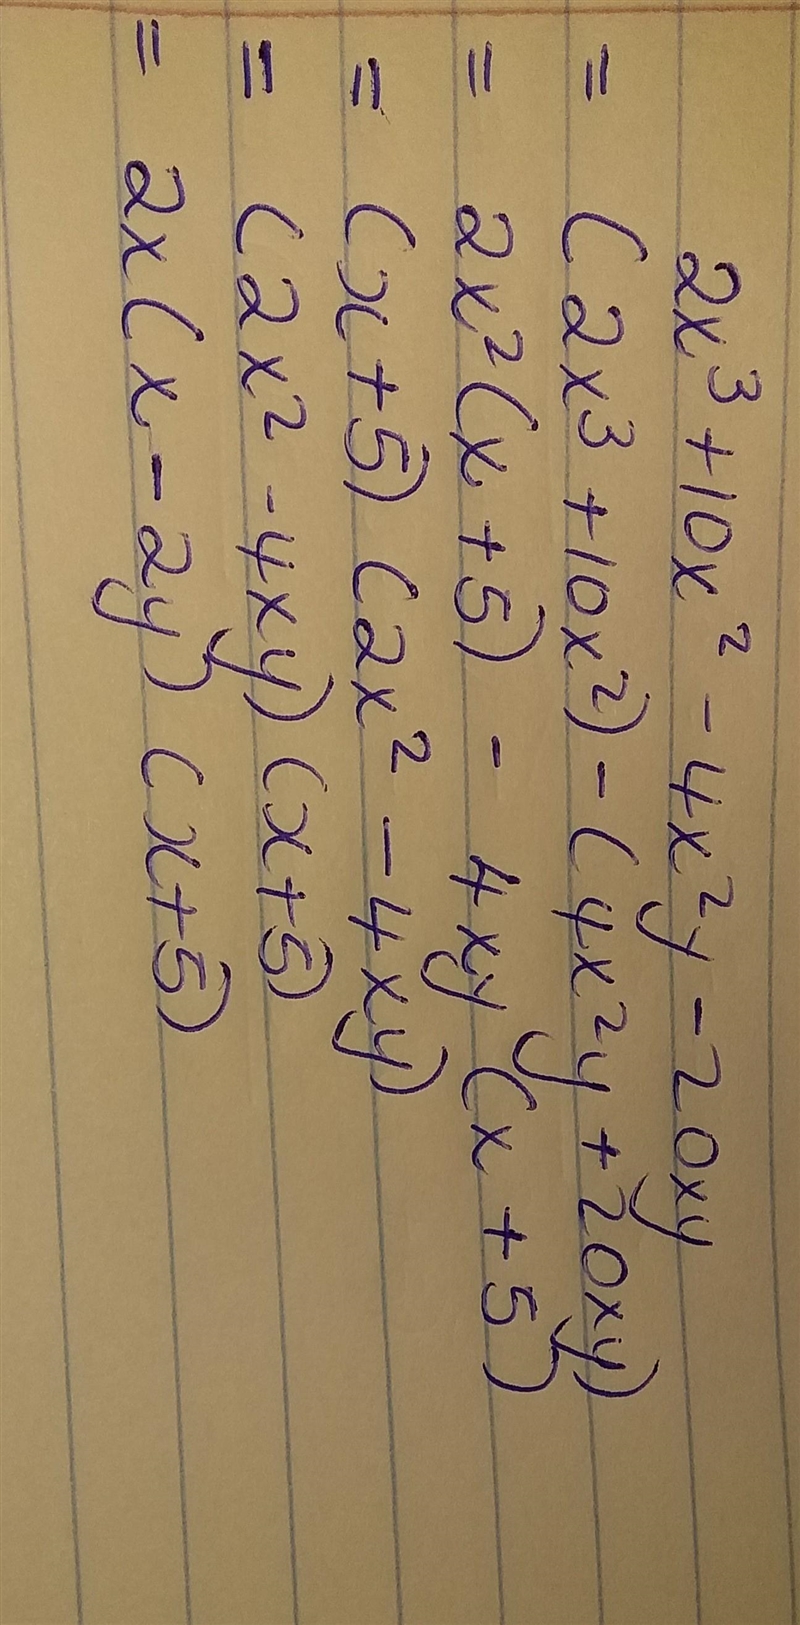 2x³ + 10x² - 4x²y - 20xy
= (2x³ + 10x²) - (4x²y + 20xy)
= 2x² (x + 5) - 4xy (x + 5)
= (x + 5) (2x² - 4xy)
= (2x² - 4xy) (x + 5)
= 2x (x - 2y) (x + 5)